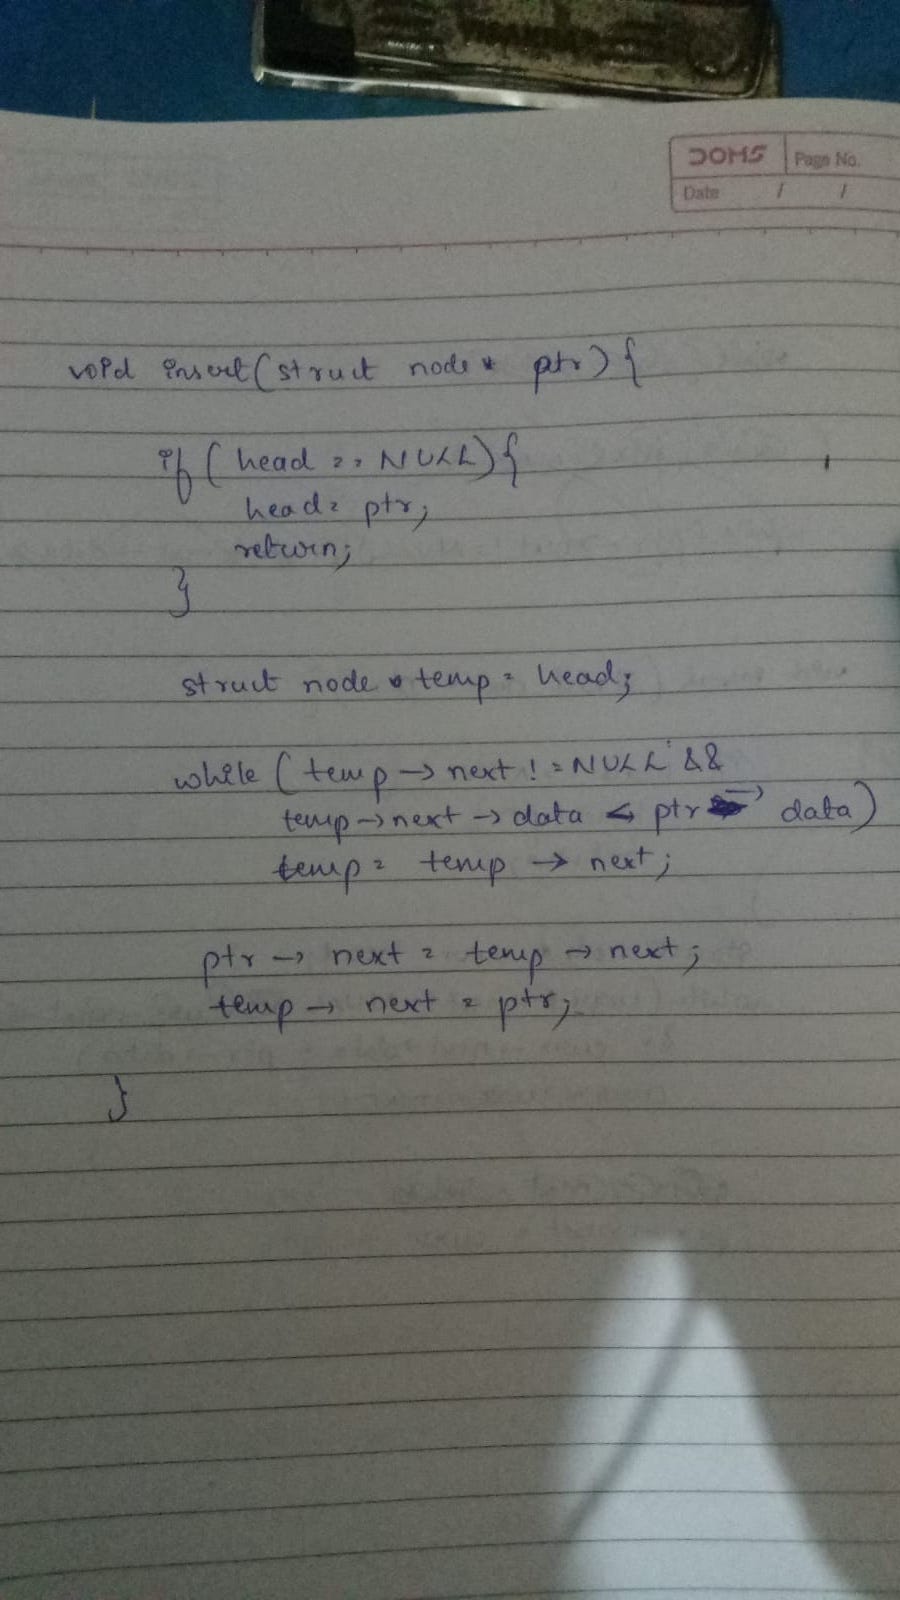 DOMS Page No.
Date / /
void insert(struct node * ptr){
if (head == NULL){
head = ptr;
return;
}
struct node * temp = head;
while (temp → next != NULL &&
temp → next → data < ptr → data)
temp = temp → next;
ptr → next = temp → next;
temp → next = ptr;
}